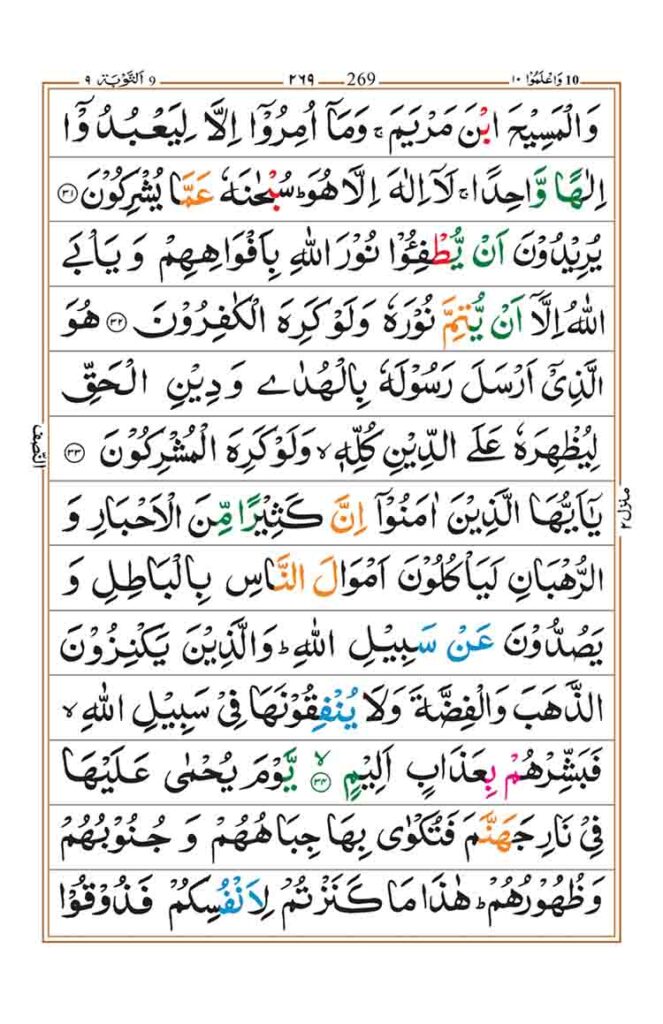 10 وَاعْلَمُوْٓا ١٠ 269 ٢٦٩ 9 اَلتَّوْبَة ٩
وَالْمَسِيْحَ ابْنَ مَرْيَمَ ۚ وَمَاۤ اُمِرُوْۤا اِلَّا لِيَعْبُدُوْۤا
اِلٰهًا وَّاحِدًا ۚ لَاۤ اِلٰهَ اِلَّا هُوَ ؕ سُبْحٰنَهٗ عَمَّا يُشْرِكُوْنَ ۝٣١
يُرِيْدُوْنَ اَنْ يُّطْفِـُٔوْا نُوْرَ اللّٰهِ بِاَفْوَاهِهِمْ وَيَاْبَى
اللّٰهُ اِلَّاۤ اَنْ يُّتِمَّ نُوْرَهٗ وَلَوْ كَرِهَ الْكٰفِرُوْنَ ۝٣٢ هُوَ
الَّذِيْۤ اَرْسَلَ رَسُوْلَهٗ بِالْهُدٰى وَدِيْنِ الْحَقِّ
لِيُظْهِرَهٗ عَلَى الدِّيْنِ كُلِّهٖ ۙ وَلَوْ كَرِهَ الْمُشْرِكُوْنَ ۝٣٣
النّصف
يٰۤاَيُّهَا الَّذِيْنَ اٰمَنُوْۤا اِنَّ كَثِيْرًا مِّنَ الْاَحْبَارِ وَ
منزل ٢
الرُّهْبَانِ لَيَاْكُلُوْنَ اَمْوَالَ النَّاسِ بِالْبَاطِلِ وَ
يَصُدُّوْنَ عَنْ سَبِيْلِ اللّٰهِ ؕ وَالَّذِيْنَ يَكْنِزُوْنَ
الذَّهَبَ وَالْفِضَّةَ وَلَا يُنْفِقُوْنَهَا فِيْ سَبِيْلِ اللّٰهِ ۙ
فَبَشِّرْهُمْ بِعَذَابٍ اَلِيْمٍ ۝٣٤ ۙ يَّوْمَ يُحْمٰى عَلَيْهَا
فِيْ نَارِ جَهَنَّمَ فَتُكْوٰى بِهَا جِبَاهُهُمْ وَجُنُوْبُهُمْ
وَظُهُوْرُهُمْ ؕ هٰذَا مَا كَنَزْتُمْ لِاَنْفُسِكُمْ فَذُوْقُوْا